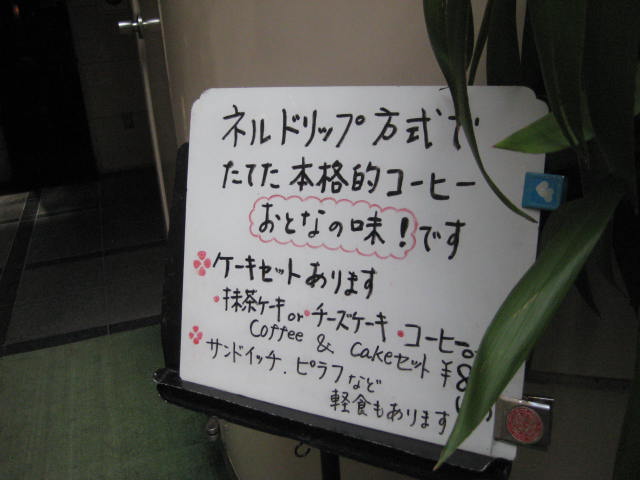 ネルドリップ方式で
たてた本格的コーヒー
おとなの味！です
ケーキセットあります
・抹茶ケーキor・チーズケーキ・コーヒー
Coffee & Cakeセット ¥8
サンドイッチ．ピラフなど
軽食もあります